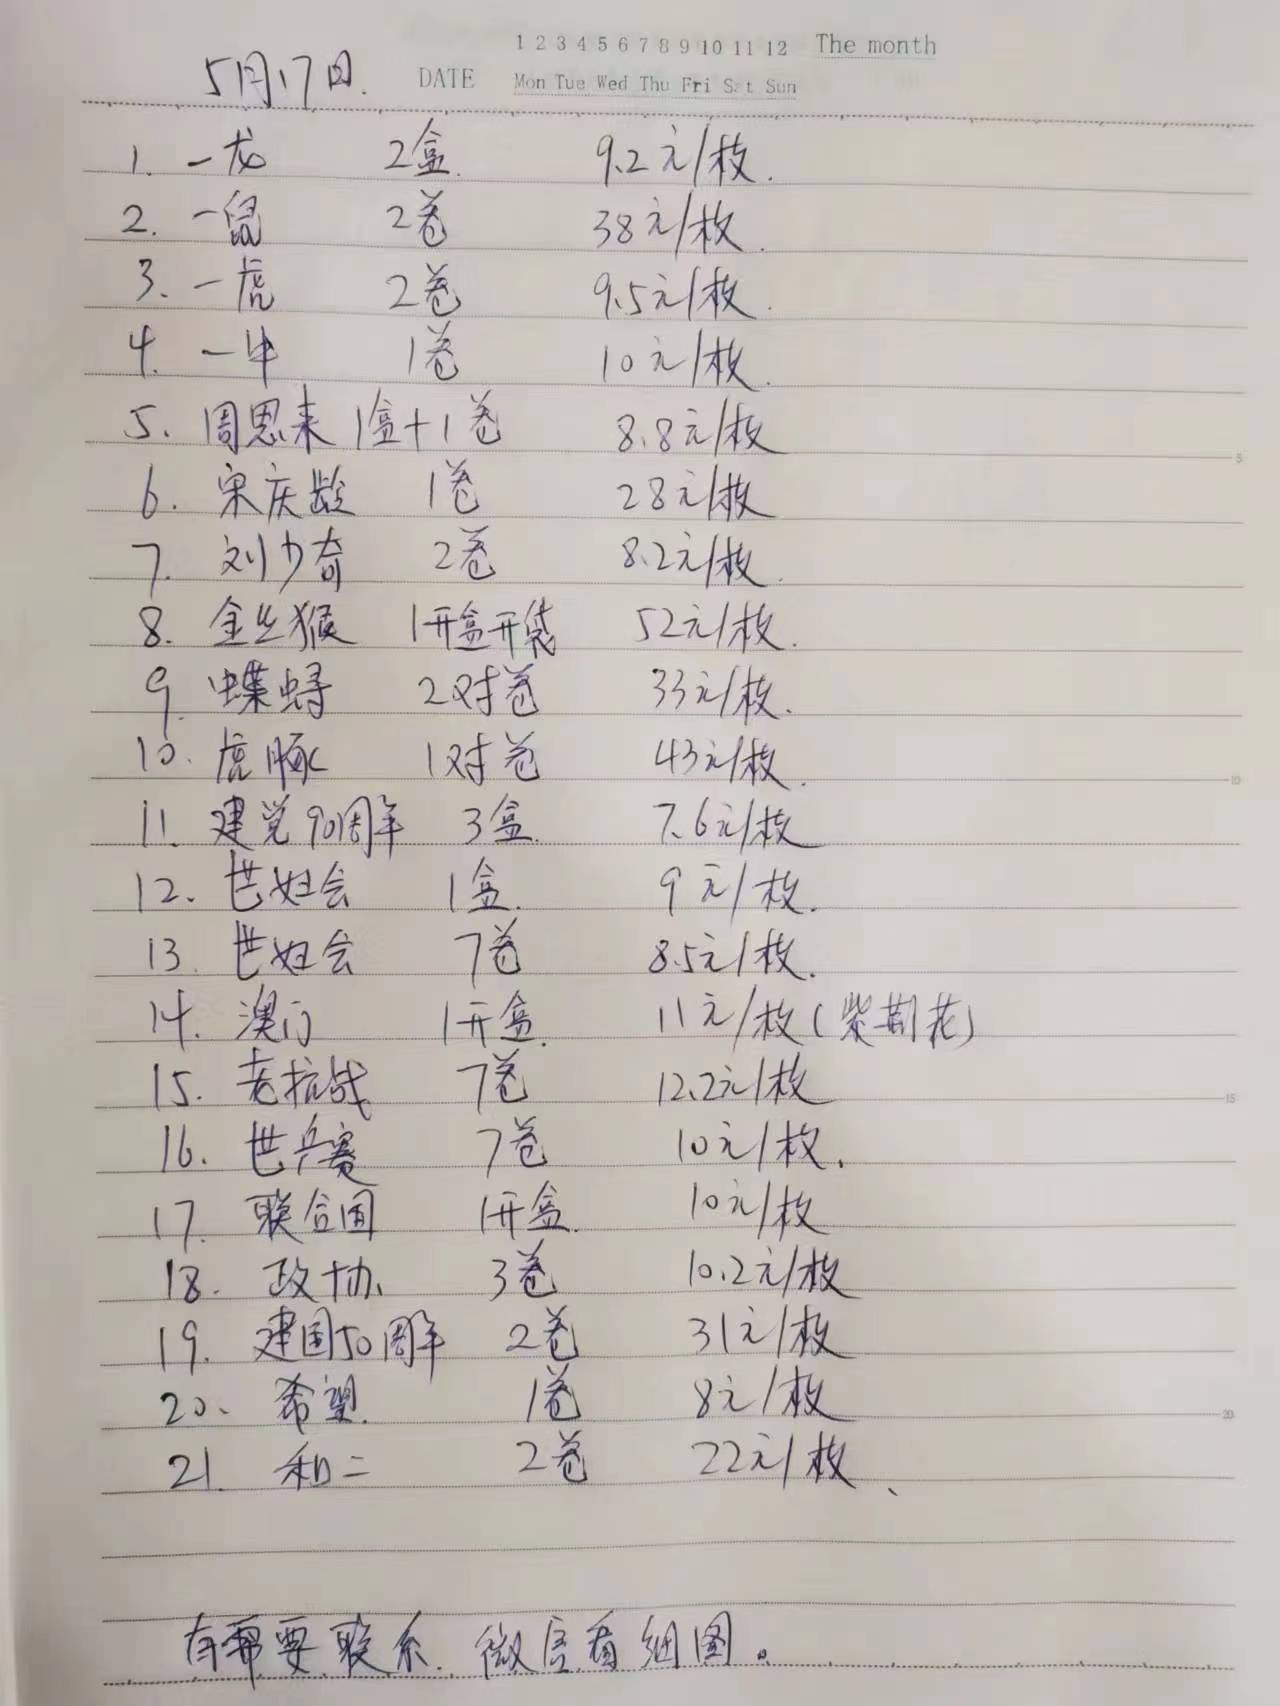 1 2 3 4 5 6 7 8 9 10 11 12 The month
5月17日. DATE Mon Tue Wed Thu Fri Sat Sun
1. 一龙 2盒. 9.2元/枚.
2. 一鼠 2卷 38元/枚.
3. 一虎 2卷 9.5元/枚.
4. 一牛 1卷 10元/枚.
5. 周恩来 1盒+1卷 8.8元/枚
6. 宋庆龄 1卷 28元/枚
7. 刘少奇 2卷 8.2元/枚.
8. 金丝猴 1开盒开袋 52元/枚.
9. 蝶蟳 2对卷 33元/枚.
10. 虎豚 1对卷 43元/枚.
11. 建党90周年 3盒. 7.6元/枚
12. 世妇会 1盒. 9元/枚.
13. 世妇会 7卷 8.5元/枚.
14. 澳门 1开盒. 11元/枚(紫荆花)
15. 老抗战 7卷 12.2元/枚
16. 世乒赛 7卷 10元/枚.
17. 联合国 1开盒. 10元/枚
18. 政协 3卷 10.2元/枚
19. 建国50周年 2卷 31元/枚
20. 希望. 1卷 8元/枚
21. 和二 2卷 22元/枚、
有需要联系. 微信看细图。
5
10
15
20